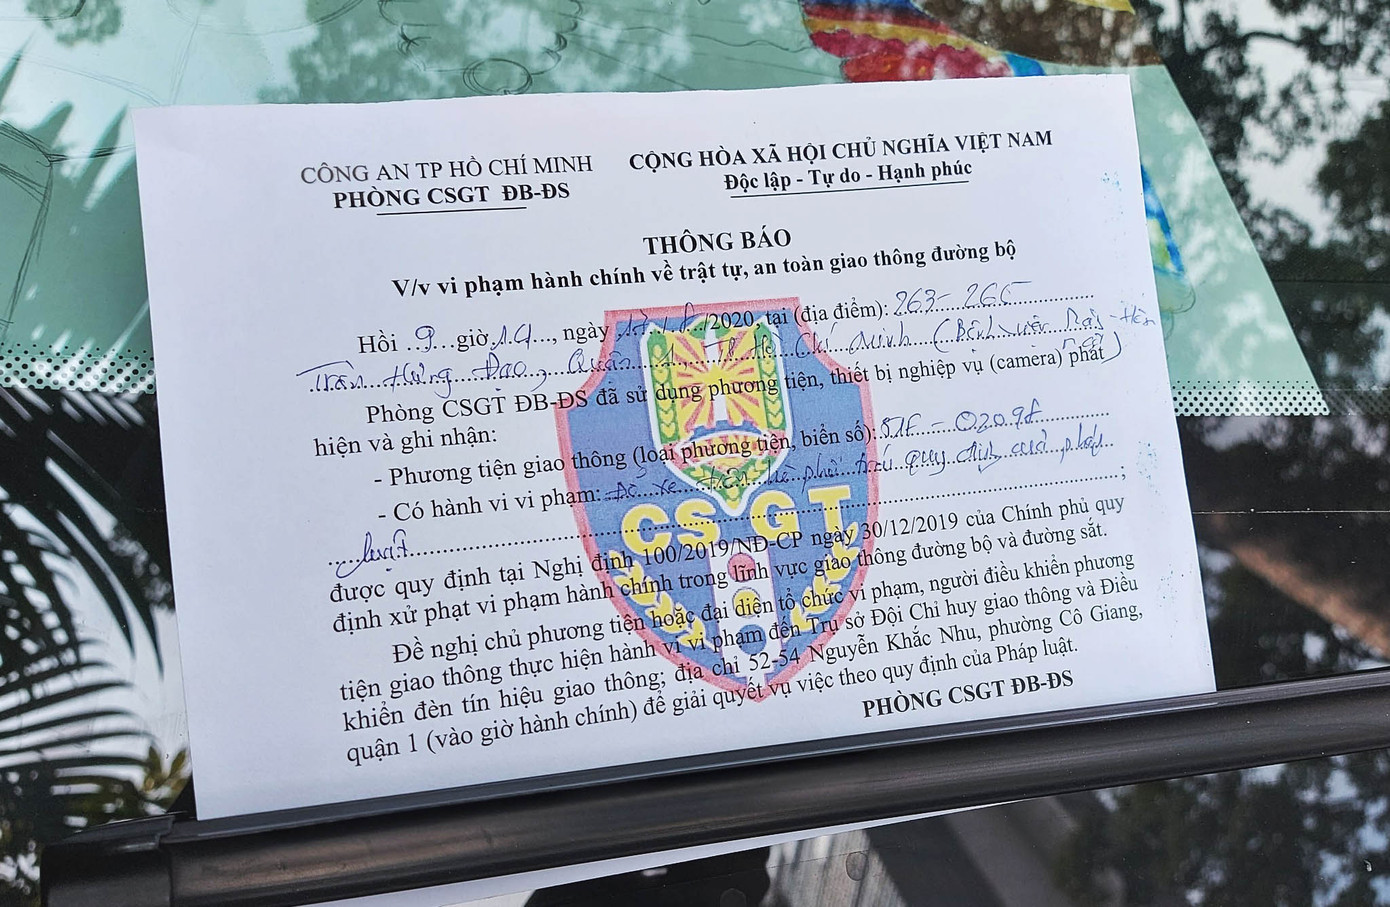 CÔNG AN TP HỒ CHÍ MINH
PHÒNG CSGT ĐB-ĐS
CỘNG HÒA XÃ HỘI CHỦ NGHĨA VIỆT NAM
Độc lập - Tự do - Hạnh phúc
THÔNG BÁO
V/v vi phạm hành chính về trật tự, an toàn giao thông đường bộ
Hồi 9 giờ 14, ngày /2020, tại (địa điểm): 263-265
Trần Hưng Đạo, Quận 1, TP Hồ Chí Minh (Bệnh viện Răng-Hàm
Phòng CSGT ĐB-ĐS đã sử dụng phương tiện, thiết bị nghiệp vụ (camera) phát
hiện và ghi nhận:
- Phương tiện giao thông (loại phương tiện, biển số): 51F-
- Có hành vi vi phạm: Đỗ xe trên hè phố trái quy định của pháp
luật ;
được quy định tại Nghị định 100/2019/NĐ-CP ngày 30/12/2019 của Chính phủ quy
định xử phạt vi phạm hành chính trong lĩnh vực giao thông đường bộ và đường sắt.
Đề nghị chủ phương tiện hoặc đại diện tổ chức vi phạm, người điều khiển phương
tiện giao thông thực hiện hành vi vi phạm đến Trụ sở Đội Chỉ huy giao thông và Điều
khiển đèn tín hiệu giao thông; địa chỉ 52-54 Nguyễn Khắc Nhu, phường Cô Giang,
quận 1 (vào giờ hành chính) để giải quyết vụ việc theo quy định của Pháp luật.
PHÒNG CSGT ĐB-ĐS
CSGT